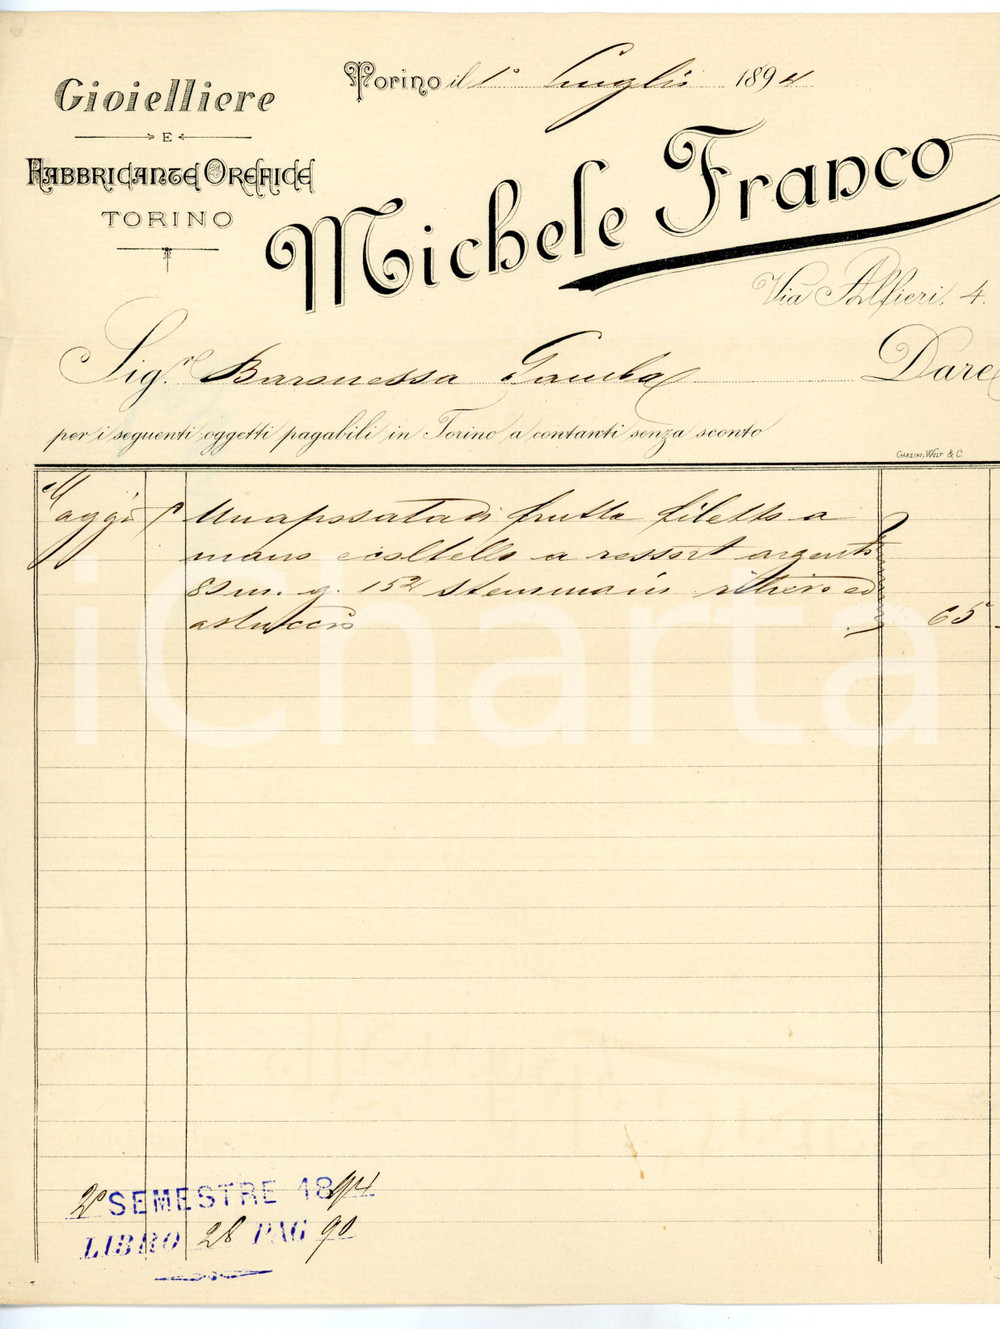 Gioielliere
E
Fabbricante Orefice
TORINO
Torino il 1° Luglio 1894
Michele Franco
Via Alfieri, 4.
Sig.ra Baronessa Gamba Dare
per i seguenti oggetti pagabili in Torino a contanti senza sconto
Garzini, Wolf & C.
Maggio 1° Una posata da frutta filetto a
mano e coltello a ressort argento
800 m. g. 152 stemma in rilievo ed
astuccio 65
2° SEMESTRE 1894
LIBRO 28 PAG 90
iCharta